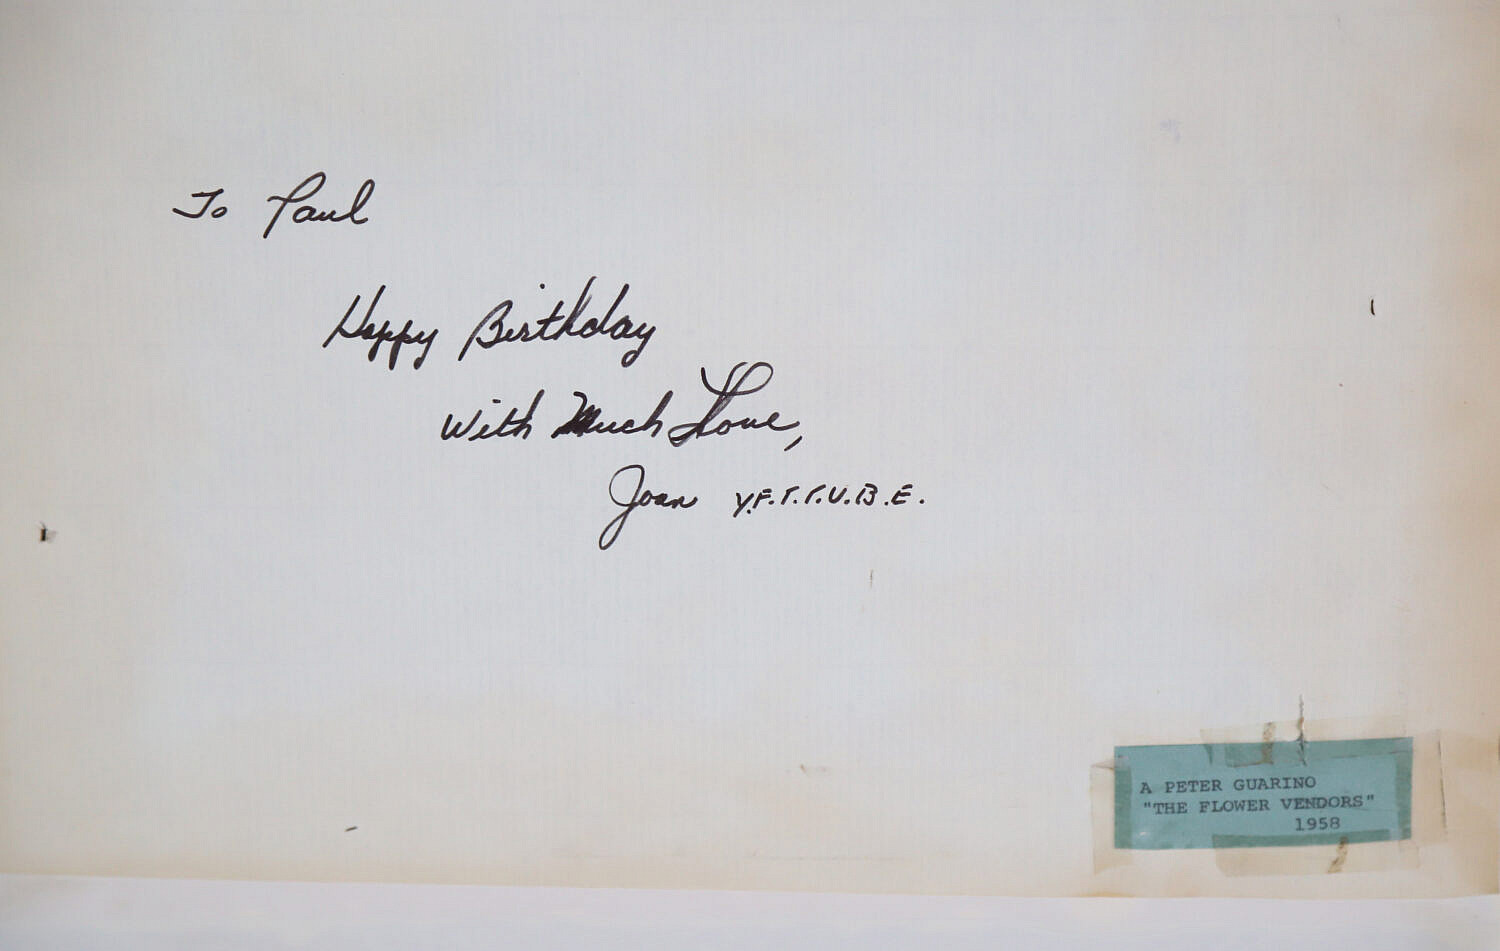 To Paul
Happy Birthday
With Much Love,
Joan Y.F.T.T.U.B.E.
A PETER GUARINO
"THE FLOWER VENDORS"
1958